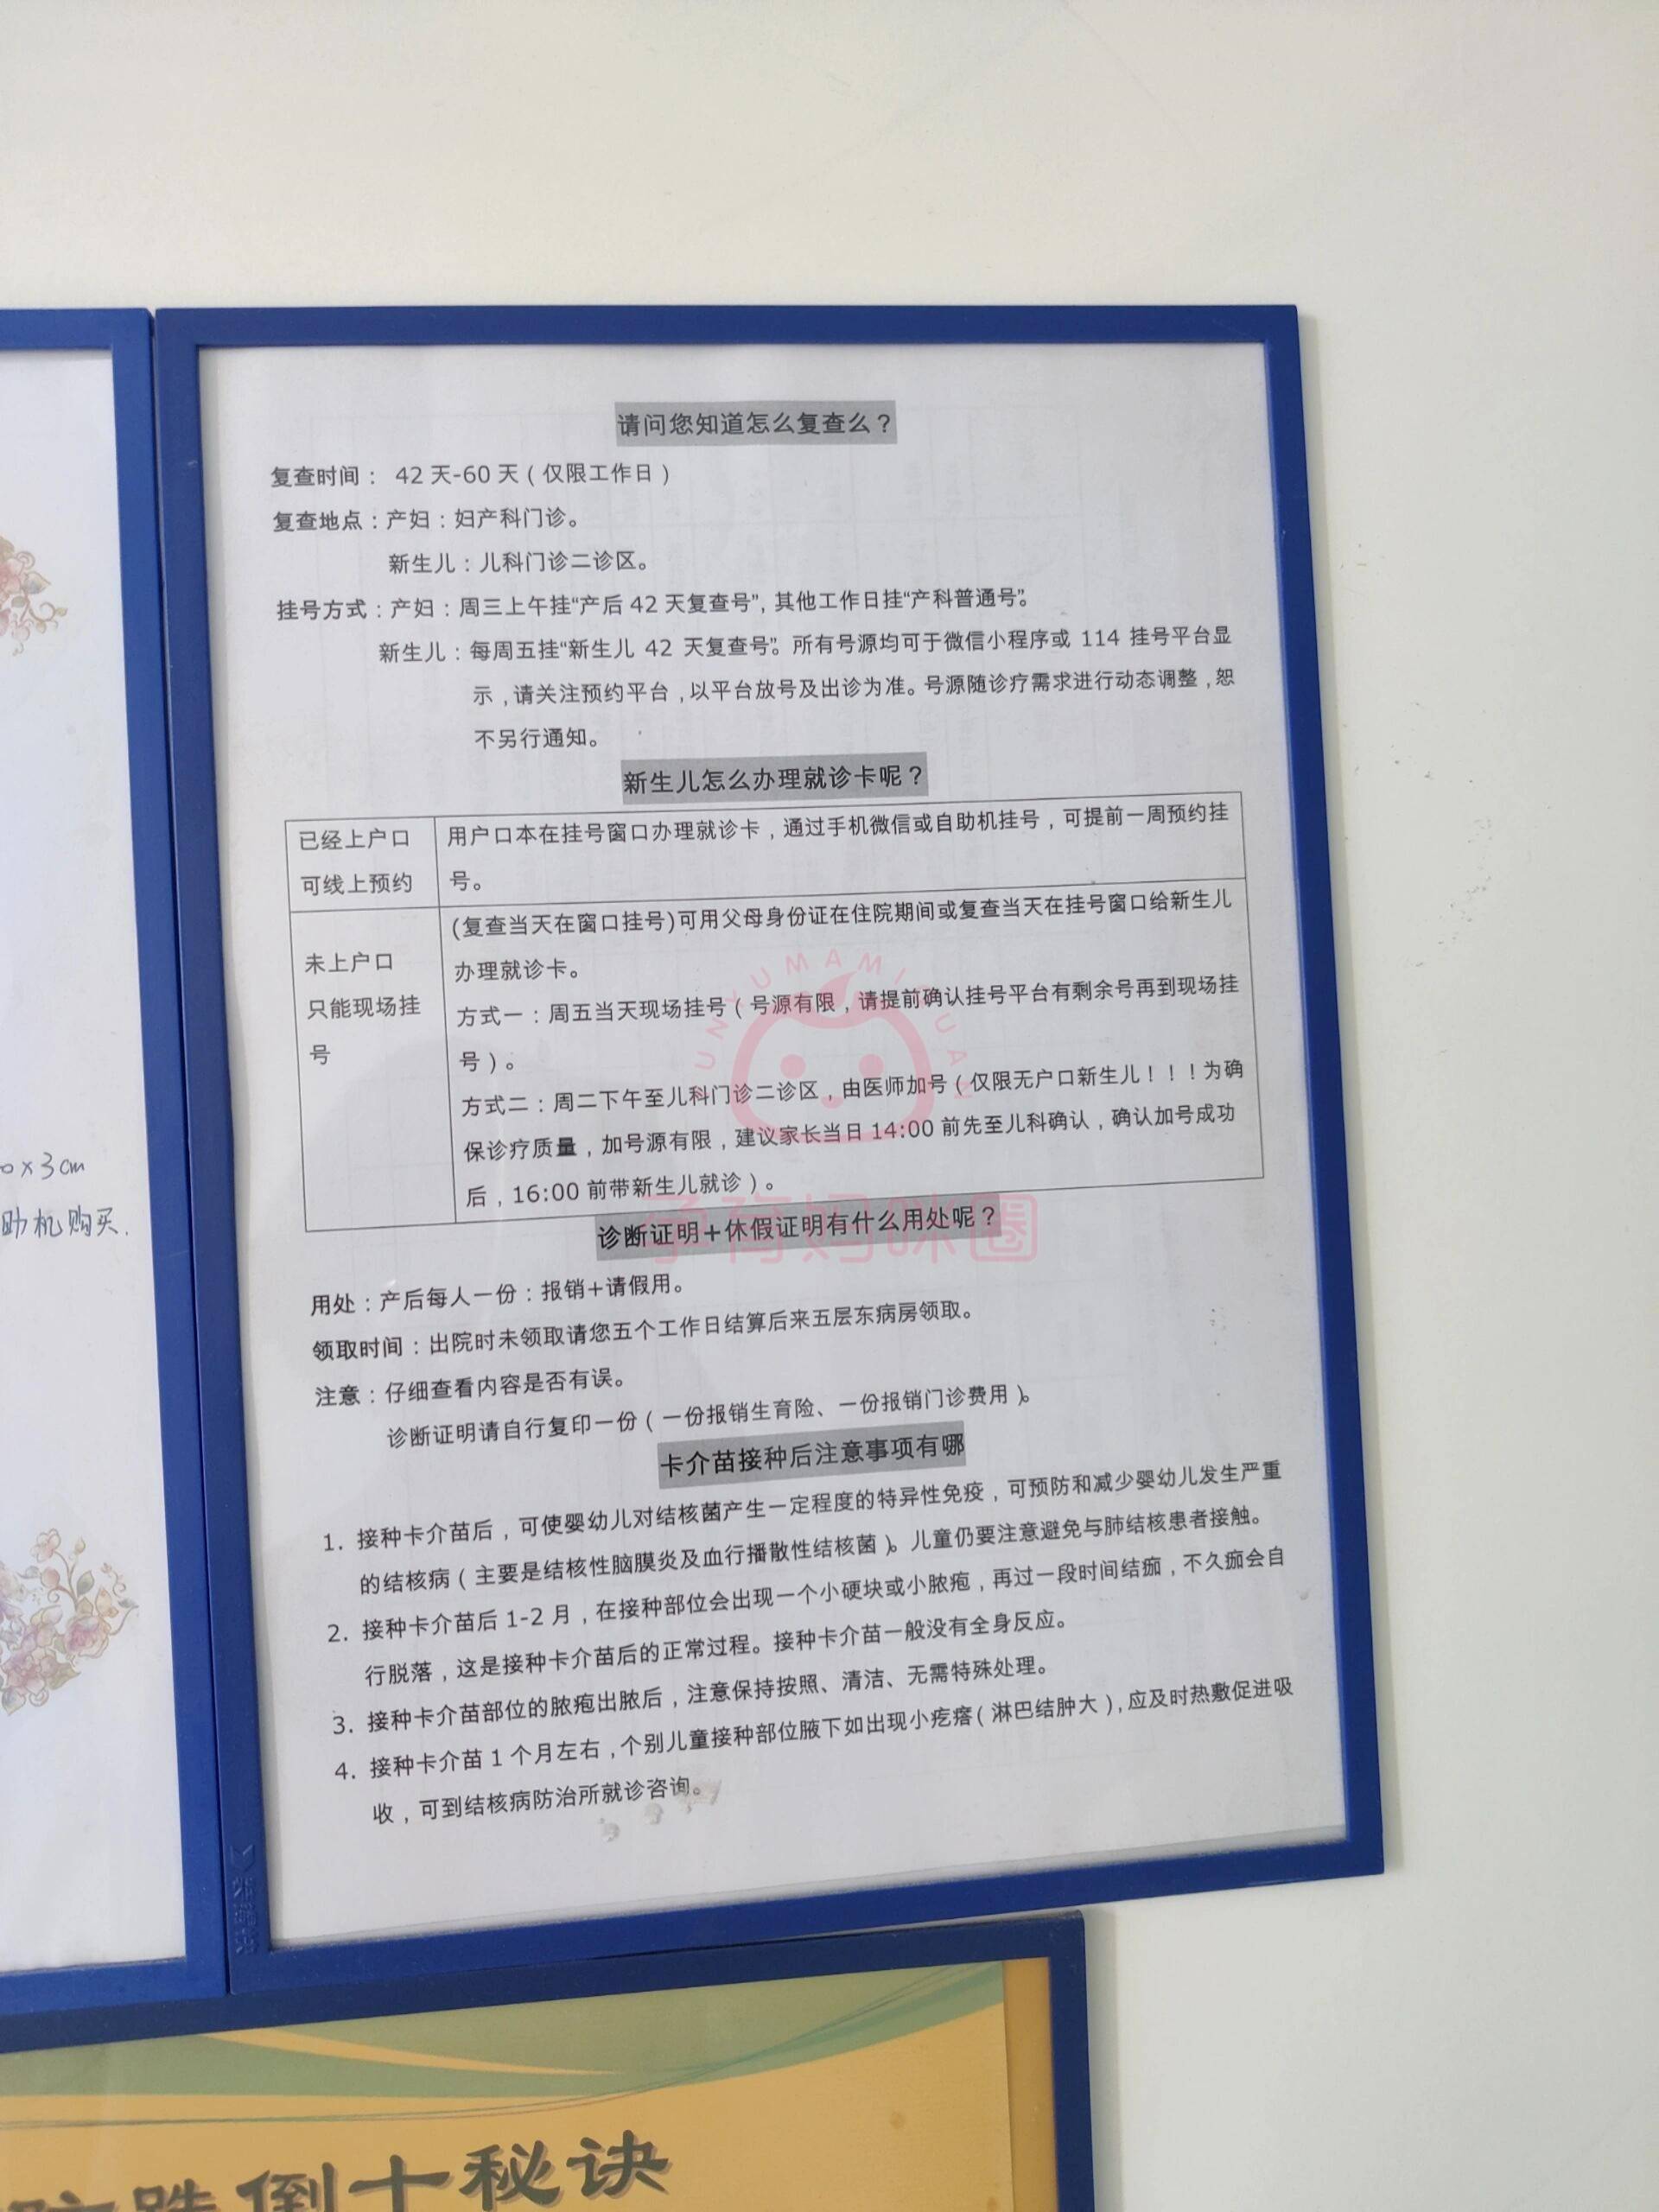 请问您知道怎么复查么？
复查时间： 42 天-60 天（仅限工作日）
复查地点：产妇：妇产科门诊。
新生儿：儿科门诊二诊区。
挂号方式：产妇：周三上午挂“产后 42 天复查号”，其他工作日挂“产科普通号”。
新生儿：每周五挂“新生儿 42 天复查号”。所有号源均可于微信小程序或 114 挂号平台显
示，请关注预约平台，以平台放号及出诊为准。号源随诊疗需求进行动态调整，恕
不另行通知。
新生儿怎么办理就诊卡呢？
已经上户口
可线上预约
用户口本在挂号窗口办理就诊卡，通过手机微信或自助机挂号，可提前一周预约挂
号。
未上户口
只能现场挂
号
(复查当天在窗口挂号)可用父母身份证在住院期间或复查当天在挂号窗口给新生儿
办理就诊卡。
方式一：周五当天现场挂号（号源有限，请提前确认挂号平台有剩余号再到现场挂
号）。
方式二：周二下午至儿科门诊二诊区，由医师加号（仅限无户口新生儿！！！为确
保诊疗质量，加号源有限，建议家长当日 14:00 前先至儿科确认，确认加号成功
后，16:00 前带新生儿就诊）。
诊断证明+休假证明有什么用处呢？
用处：产后每人一份：报销+请假用。
领取时间：出院时未领取请您五个工作日结算后来五层东病房领取。
注意：仔细查看内容是否有误。
诊断证明请自行复印一份（一份报销生育险、一份报销门诊费用）。
卡介苗接种后注意事项有哪
1. 接种卡介苗后，可使婴幼儿对结核菌产生一定程度的特异性免疫，可预防和减少婴幼儿发生严重
的结核病（主要是结核性脑膜炎及血行播散性结核菌）。儿童仍要注意避免与肺结核患者接触。
2. 接种卡介苗后 1-2 月，在接种部位会出现一个小硬块或小脓疱，再过一段时间结痂，不久痂会自
行脱落，这是接种卡介苗后的正常过程。接种卡介苗一般没有全身反应。
3. 接种卡介苗部位的脓疱出脓后，注意保持按照、清洁、无需特殊处理。
4. 接种卡介苗 1 个月左右，个别儿童接种部位腋下如出现小疙瘩（淋巴结肿大），应及时热敷促进吸
收，可到结核病防治所就诊咨询。
x3cm
助机购买.
孕育妈咪圈
跌倒十秘诀